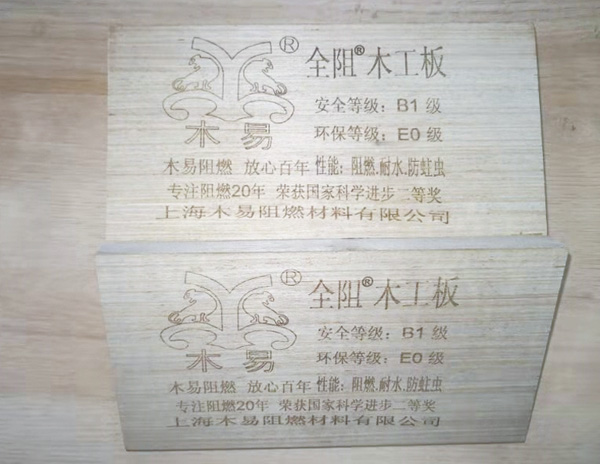 ®
全阻®木工板
安全等级：B1 级
木易
环保等级：E0 级
木易阻燃 放心百年 性能：阻燃.耐水.防蛀虫
专注阻燃20年 荣获国家科学进步二等奖
上海木易阻燃材料有限公司
®
全阻®木工板
安全等级：B1 级
木易
环保等级：E0 级
木易阻燃 放心百年 性能：阻燃.耐水.防蛀虫
专注阻燃20年 荣获国家科学进步二等奖
上海木易阻燃材料有限公司